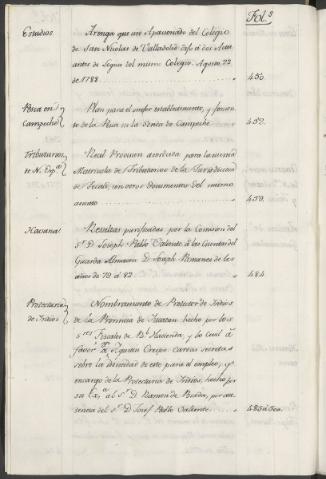 Fol.s
Estudios
Arenga que un Apasionado del Colegio
de San Nicolas de Valladolid dijo á dos Actu
antes de Leyes del mismo Colegio. Agosto 22
de 1783
450.
Pesca en
Campeche
Plan para el mejor establecimiento, y fomen
to de la Pesca en la Sonda de Campeche
452.
Tributarios
Real Provision
Matriculas de Tributarios de la Jurisdiccion
de con otros documentos del mismo
asunto
459.
Havana
Resultas purificadas por la Comision del
S.r D. Joseph Pablo Valiente á las Cuentas del
Guarda Almacen D. Joseph de los
años de 79 á 82.
484
Protecturia
de Indios
Nombramiento de Protector de Indios
de la Provincia de Yucatan hecho por los
S.res Fiscales de R.l Hacienda, y lo Civil á
favor de D. Agustin Crespo. Cartas secretas
sobre la de este para el empleo, y
encargo de la Protecturia de Indios, hecho por
su Ex.a al S.r D. Ramon de Posada, por au
sencia del S.r D. Josef Pablo Valiente.